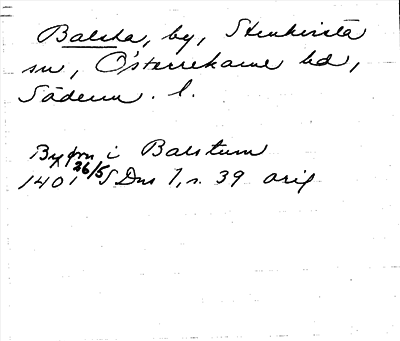 Balsta, by, Stenkvista
sn, Österrekarne hd,
Söderm. l.
By frn i Balstum
1401 26/5 SDns 1, s. 39 orig